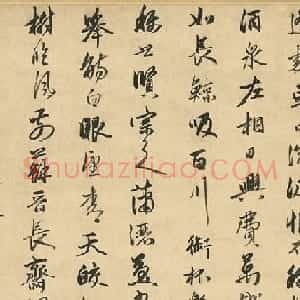 酒泉左相日興費萬
如長鯨吸百川銜杯
稱世賢宗之瀟灑美
舉觴白眼望青天皎
樹臨風前蘇晉長齋
Shufaziliao.com